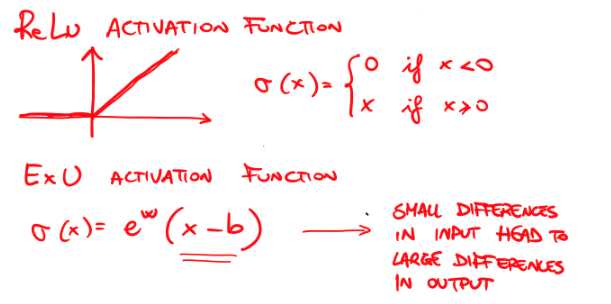 ReLu ACTIVATION FUNCTION
σ(x)= { 0 if x <0
x if x ≥0
ExU ACTIVATION FUNCTION
σ(x)= e^w (x-b) → SMALL DIFFERENCES
IN INPUT HEAD TO
LARGE DIFFERENCES
IN OUTPUT